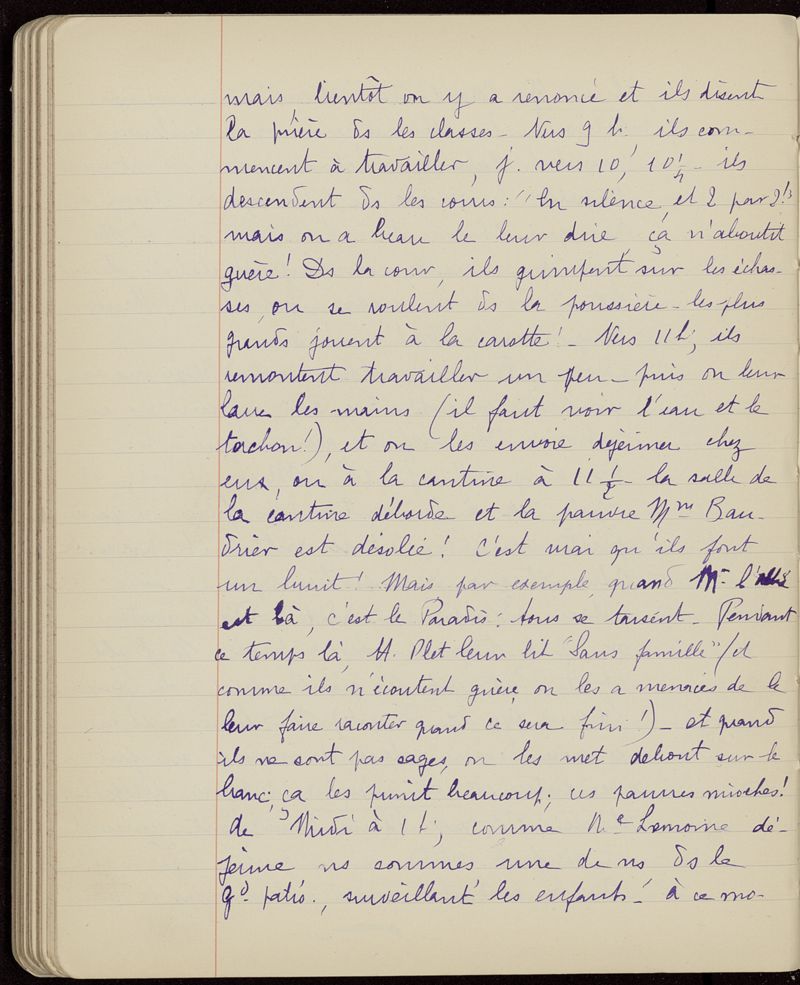 mais, bientôt on y a renoncé et ils disent
la prière ds les classes - Vers 9 h. ils com-
mencent à travailler, j. vers 10, 10 1/4 - ils
descendent ds les cours : "En silence, et 2 par 2!"
mais on a beau le leur dire, ça n'aboutit
guère! Ds la cour, ils grimpent sur les échas-
ses, ou se roulent ds la poussière - les plus
grands jouent à la carotte! - Vers 11 h, ils
remontent travailler un peu - puis on leur
lave les mains (il faut voir l'eau et le
torchon!), et on les envoie déjeuner chez
eux, ou à la cantine à 11 1/2 - la salle de
la cantine déborde et la pauvre Mme Bau-
drier est désolée! C'est vrai qu'ils font
un bruit! Mais, par exemple, quand Mr l'abbé
est là, c'est le Paradis : tous se taisent - Pendant
ce temps là, M. Plet leur lit "Sans famille" (et
comme ils n'écoutent guère, on les a menacés de le
leur faire raconter quand ce sera fini!) - et quand
ils ne sont pas sages, on les met debout sur le
banc; ça les punit beaucoup, ces pauvres mioches!
de Midi à 1 h, comme Mle Lemoine dé-
jeune ns sommes une de ns ds le
gd patio., surveillant les enfants - à ce mo-